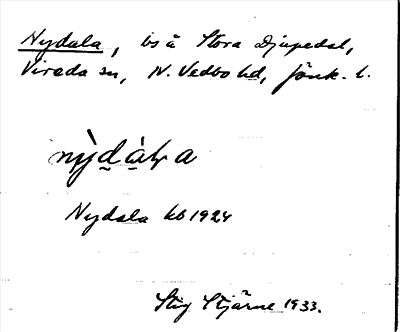 Nydala, bs å Stora Djupedal,
Vireda sn, N. Vedbo hd, Jönk. l.
nỳ̠d̠à̠ɫa
Nydala kb 1924
Stig Stjärne 1933.